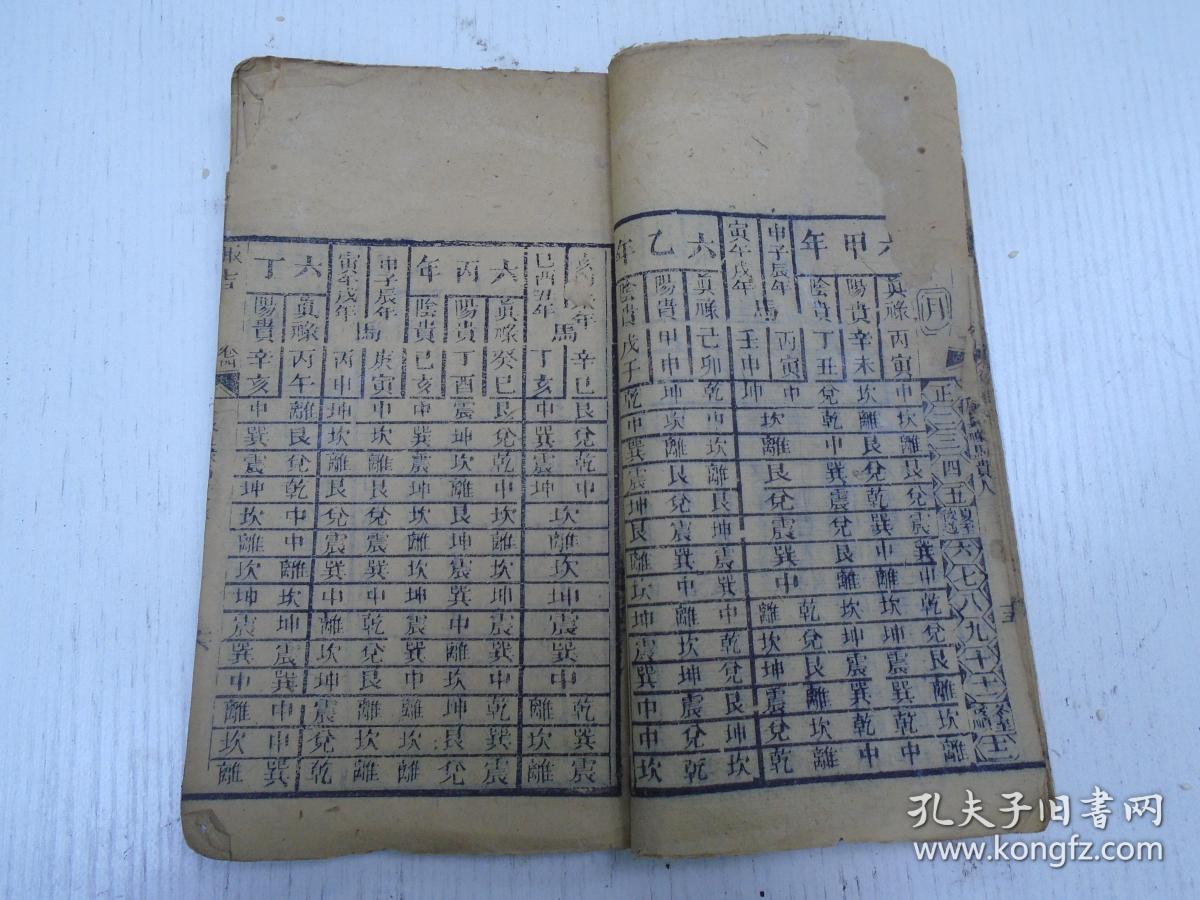 月
正
二
三
四
五
六
七
八
九
十
十一
十二
六甲年
真祿 丙寅 中 坎 離 艮 兌 震 巽 中 乾 兌 艮 離 坎 離
陽貴 辛未 坎 離 艮 兌 乾 巽 中 離 坎 坤 震 巽 乾 中
陰貴 丁丑 兌 乾 中 巽 震 兌 艮 離 坎
申子辰年 馬 丙寅 中
寅午戌年 壬申 坤
坎 離 艮 兌 震 巽 中
乾 兌 艮 離 坎 離
離 坎 坤 震 兌 乾
六乙年
真祿 己卯 乾 中 坎 離 艮 兌 震 巽 中 乾 兌 艮
陽貴 甲申 坤 坎 離 艮 兌 震 巽 中 離 坎 坤 震 兌 乾
陰貴 戊子 乾 中 巽 震 坤 艮 離 坎 坤 震 巽 中 中 坎
年 馬 辛巳 艮 兌 乾 中
巳酉丑年 丁亥 中 巽 震 坤
坎 離 坎 坤 震 巽 中
乾 巽 震
離 坎 離
六丙年
真祿 癸巳 艮 兌 乾 中 坎 離 坎 坤 震 巽 中 乾 巽 震
陽貴 丁酉 震 坤 坎 離 艮 坤 震 巽 中 離 坎 坤 艮 兌
陰貴 已亥 中 巽 震 坤 坎 離 坎 坤 震 巽 中 離 坎 離
申子辰年 馬 庚寅 中 坎 離 艮 兌 震 巽 中 乾 兌 艮 離 坎 離
寅午戌年 丙申 坤 坎 離 艮 兌 震 巽 中 離 坎 坤 震 兌 乾
六丁
真祿 丙午 離 艮 兌 乾 中 中 離 坎 坤 震 巽 中 中 巽
陽貴 辛亥 中 巽 震 坤 坎 離 坎 坤 震 巽 中 離 坎 離
卷四
孔夫子旧书网
www.kongfz.com